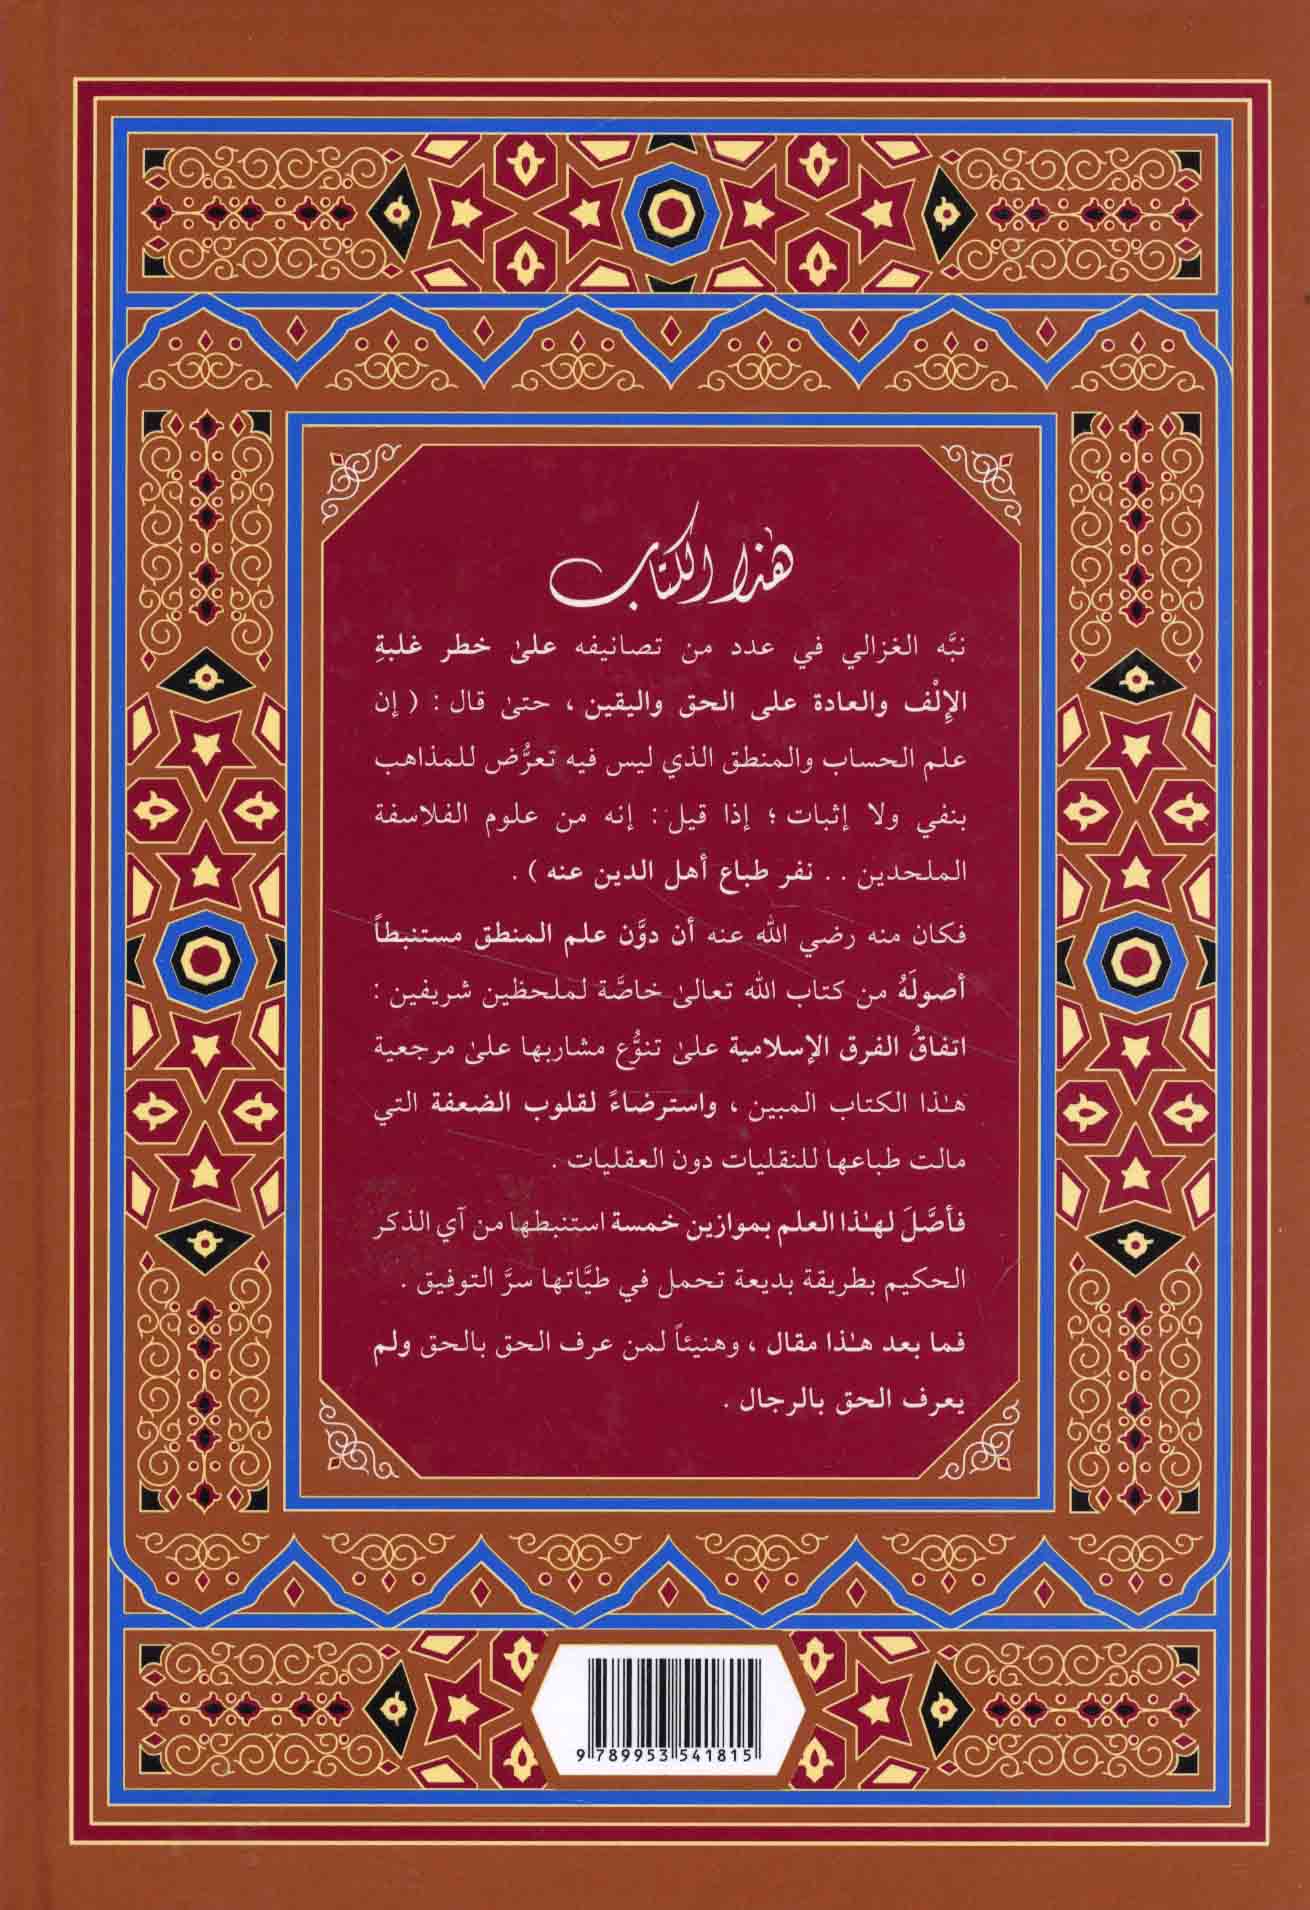 هذا الكتاب
نبَّه الغزالي في عدد من تصانيفه علىٰ خطر غلبةِ
الإِلْف والعادة على الحق واليقين ، حتىٰ قال : ( إن
علم الحساب والمنطق الذي ليس فيه تعرُّض للمذاهب
بنفي ولا إثبات ؛ إذا قيل : إنه من علوم الفلاسفة
الملحدين . . نفر طباع أهل الدين عنه ) .
فكان منه رضي الله عنه أن دوَّن علم المنطق مستنبطاً
أصولَهُ من كتاب الله تعالىٰ خاصَّة لملحظين شريفين :
اتفاقُ الفرق الإسلامية علىٰ تنوُّع مشاربها علىٰ مرجعية
هـٰذا الكتاب المبين ، واسترضاءً لقلوب الضعفة التي
مالت طباعها للنقليات دون العقليات .
فأصَّلَ لهـٰذا العلم بموازين خمسة استنبطها من آي الذكر
الحكيم بطريقة بديعة تحمل في طيَّاتها سرَّ التوفيق .
فما بعد هـٰذا مقال ، وهنيئاً لمن عرف الحق بالحق ولم
يعرف الحق بالرجال .
9 789953 541815